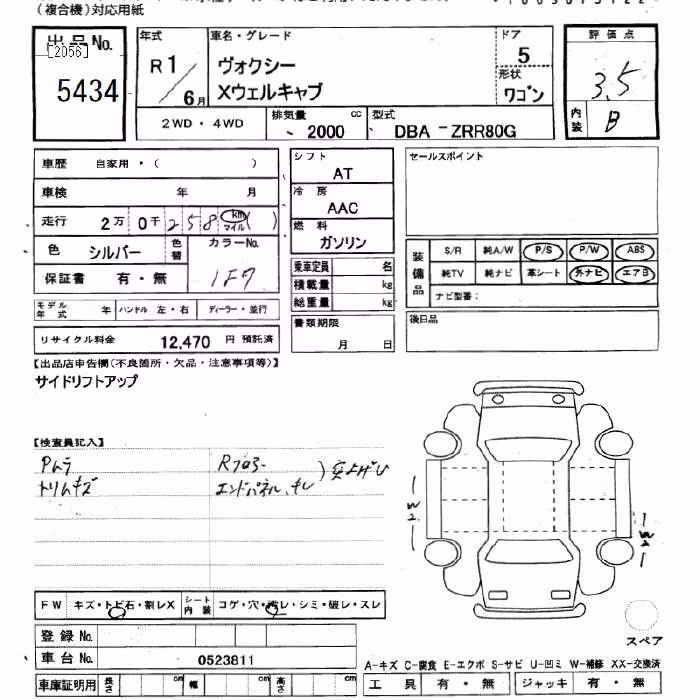 (複合機)対応用紙
出品No.
[2056]
5434
年式
R1/6月
車名・グレード
ヴォクシー
Xウェルキャブ
ドア
5
形状
ワゴン
2WD・4WD
排気量
2000 cc
型式
DBA -ZRR80G
評価点
3.5
内装
B
車歴 自家用・( )
車検 年 月
走行 2万 0千 258 km マイル ( )
色 シルバー 色替 カラーNo.
保証書 有・無 1F7
モデル年式 年 ハンドル 左・右 ディーラー・並行
リサイクル料金 12,470 円 預託済
シフト
AT
冷房
AAC
燃料
ガソリン
乗車定員 名
積載量 kg
総重量 kg
書類期限
月 日
セールスポイント
装備品
S/R 純A/W P/S P/W ABS
純TV 純ナビ 革シート 外ナビ エアB
ナビ型番:
後日品
【出品店申告欄(不良箇所・欠品・注意事項等)】
サイドリフトアップ
【検査員記入】
Pムラ
トリムキズ
Rフロアー
エンドパネル、キレ
突上げU
W2
W2
FW キズ・トビ石・割レX シート内装 コゲ・穴・汚レ・シミ・破レ・スレ
登録No.
車台No. 0523811
車庫証明用 長さ cm 幅 cm 高さ cm
スペア
A-キズ C-腐食 E-エクボ S-サビ U-凹ミ W-補修 XX-交換済
工具 有・無 ジャッキ 有・無